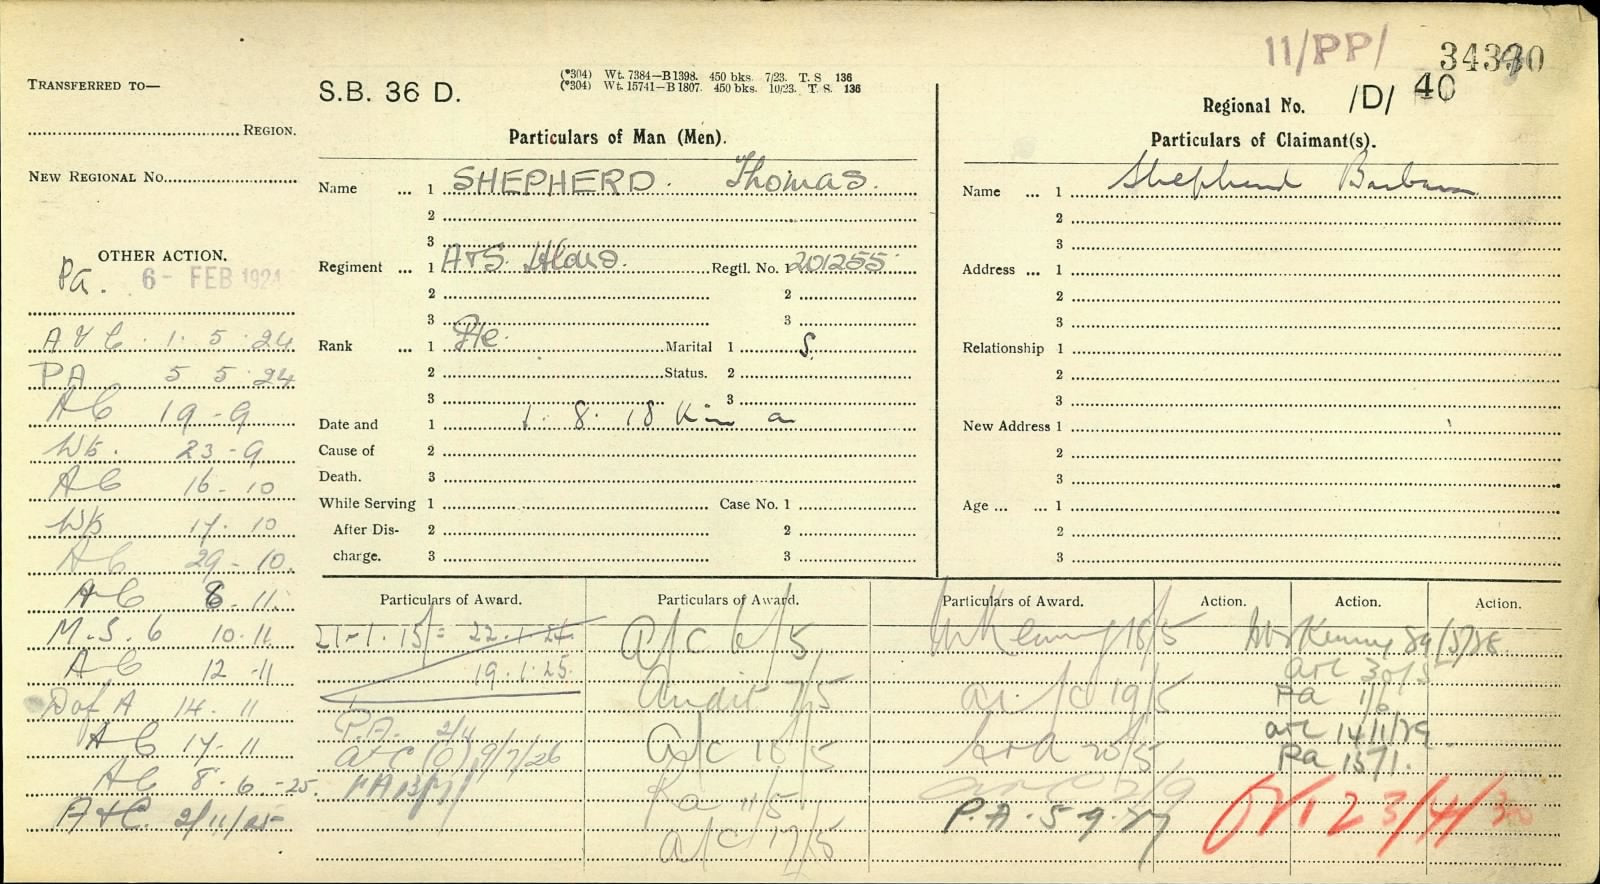 11/PP/ 34330
TRANSFERRED TO—
S.B. 36 D.
(*304) Wt. 7384—B1398. 450 bks. 7/23. T. S 136
(*304) Wt. 15741—B1807. 450 bks. 10/23. T. S. 136
Regional No. /D/ 40
REGION.
Particulars of Man (Men).
Particulars of Claimant(s).
NEW REGIONAL NO.
Name ... 1 SHEPHERD. Thomas.
2
3
Name ... 1 Shepherd Barbara
2
3
OTHER ACTION.
Pa. 6 - FEB 1924
Regiment ... 1 A&S. Hldrs. Regtl. No. 1 201255
2 2
3 3
Address ... 1
2
3
Rank ... 1 Pte. Marital 1 S.
2 Status. 2
3 3
Relationship 1
2
3
Date and 1 1. 8. 18 K in a
Cause of 2
Death. 3
New Address 1
2
3
While Serving 1 Case No. 1
After Dis- 2 2
charge. 3 3
Age ... ... 1
2
3
A & C. 1. 5. 24
PA 5 5 24
AC 19-9
Wk. 23-9
AC 16-10
Wk 17. 10
AC 29-10.
AC 6. 11.
M.S. 6 10.11
AC 12-11
D of A 14. 11
AC 17-11
AC 8. 6. -25.
A&C. 2/11/25
Particulars of Award.
21-1. 15/= 22.1.24
19.1.25.
P.A. 2/4
A&C (O) 9/7/26
PA 13/7/
Particulars of Award.
A/C 6/5
Audit 7/5
A/C 10/5
Pa 11/5
A/C 17/5
Particulars of Award.
18/5
A/C 19/5
20/5
2/9
P.A. 5.9.27
Action. Action. Action.
Kenny 29/5/28
A&C 30/5
Pa 1/6
A&C 14/11/29
Pa 15/1.
23/4/30